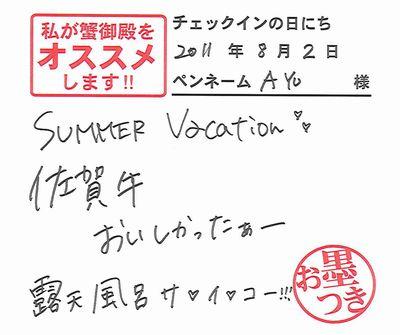 私が蟹御殿を
オススメ
します!!
チェックインの日にち
2011 年 8 月 2 日
ペンネーム AYU 様
SUMMER Vacation
佐賀牛
おいしかったぁー
露天風呂 サ・イ・コー!!!
お墨つき